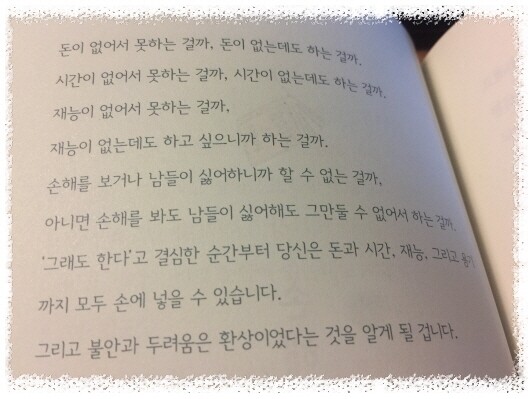 돈이 없어서 못하는 걸까, 돈이 없는데도 하는 걸까.
시간이 없어서 못하는 걸까, 시간이 없는데도 하는 걸까.
재능이 없어서 못하는 걸까,
재능이 없는데도 하고 싶으니까 하는 걸까.
손해를 보거나 남들이 싫어하니까 할 수 없는 걸까,
아니면 손해를 봐도 남들이 싫어해도 그만둘 수 없어서 하는 걸까.
'그래도 한다'고 결심한 순간부터 당신은 돈과 시간, 재능, 그리고 용기
까지 모두 손에 넣을 수 있습니다.
그리고 불안과 두려움은 환상이었다는 것을 알게 될 겁니다.